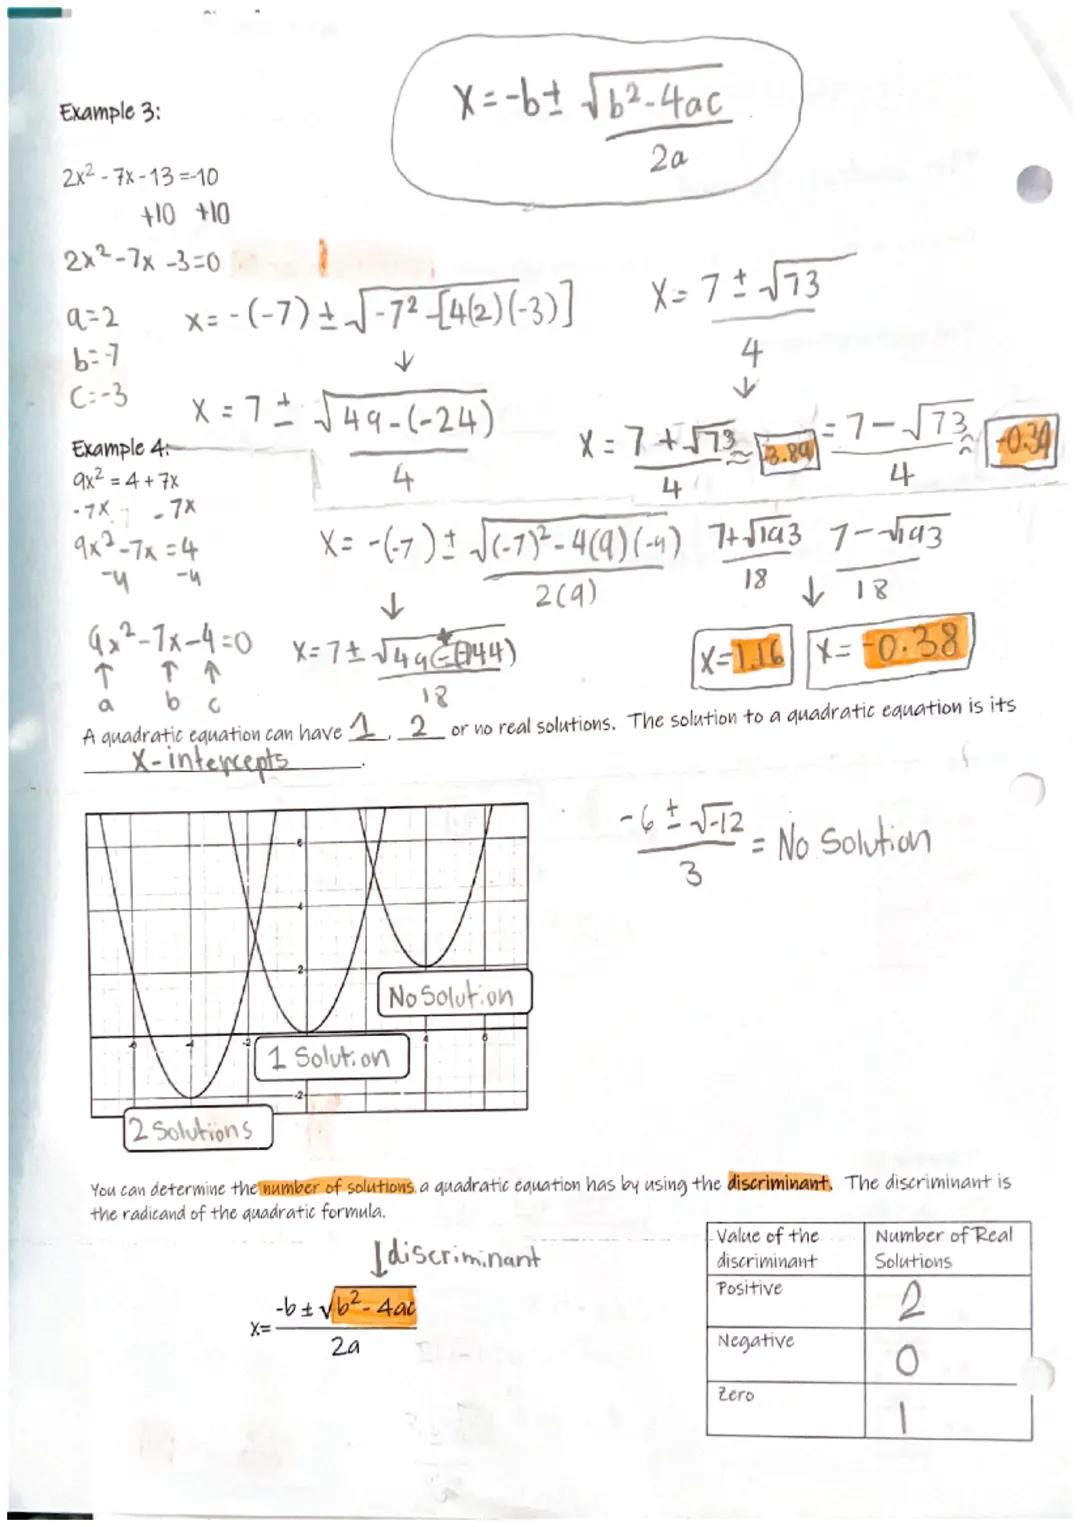 X = -b ± √b²-4ac
2a
Example 3:
2x² - 7x - 13 = -10
+10 +10
2x² - 7x - 3 = 0
a = 2
b = -7
C = -3
x = -(-7) ± √-7² - [4(2)(-3)]
↓
X = 7 ± √49-(-24)
4
X = 7 ± √73
4
↓
X = 7 + √73 ≈ 3.89
4
= 7 - √73 ≈ -0.39
4
Example 4:
9x² = 4 + 7x
-7x -7x
9x² - 7x = 4
-4 -4
9x² - 7x - 4 = 0
↑ ↑ ↑
a b c
X = -(-7) ± √(-7)² - 4(9)(-4)
2(9)
↓
18
7+√193
18
7-√193
18
↓
X = 1.16
X = -0.38
A quadratic equation can have 1, 2 or no real solutions. The solution to a quadratic equation is its
X-intercepts.
-6 ± √-12 = No Solution
3
6
4
2
-2
4
6
No Solution
1 Solution
2 Solutions
You can determine the number of solutions a quadratic equation has by using the discriminant. The discriminant is
the radicand of the quadratic formula.
↓ discriminant
x = -b ± √b² - 4ac
2a
Value of the discriminant
Number of Real Solutions
Positive
2
Negative
0
Zero
1